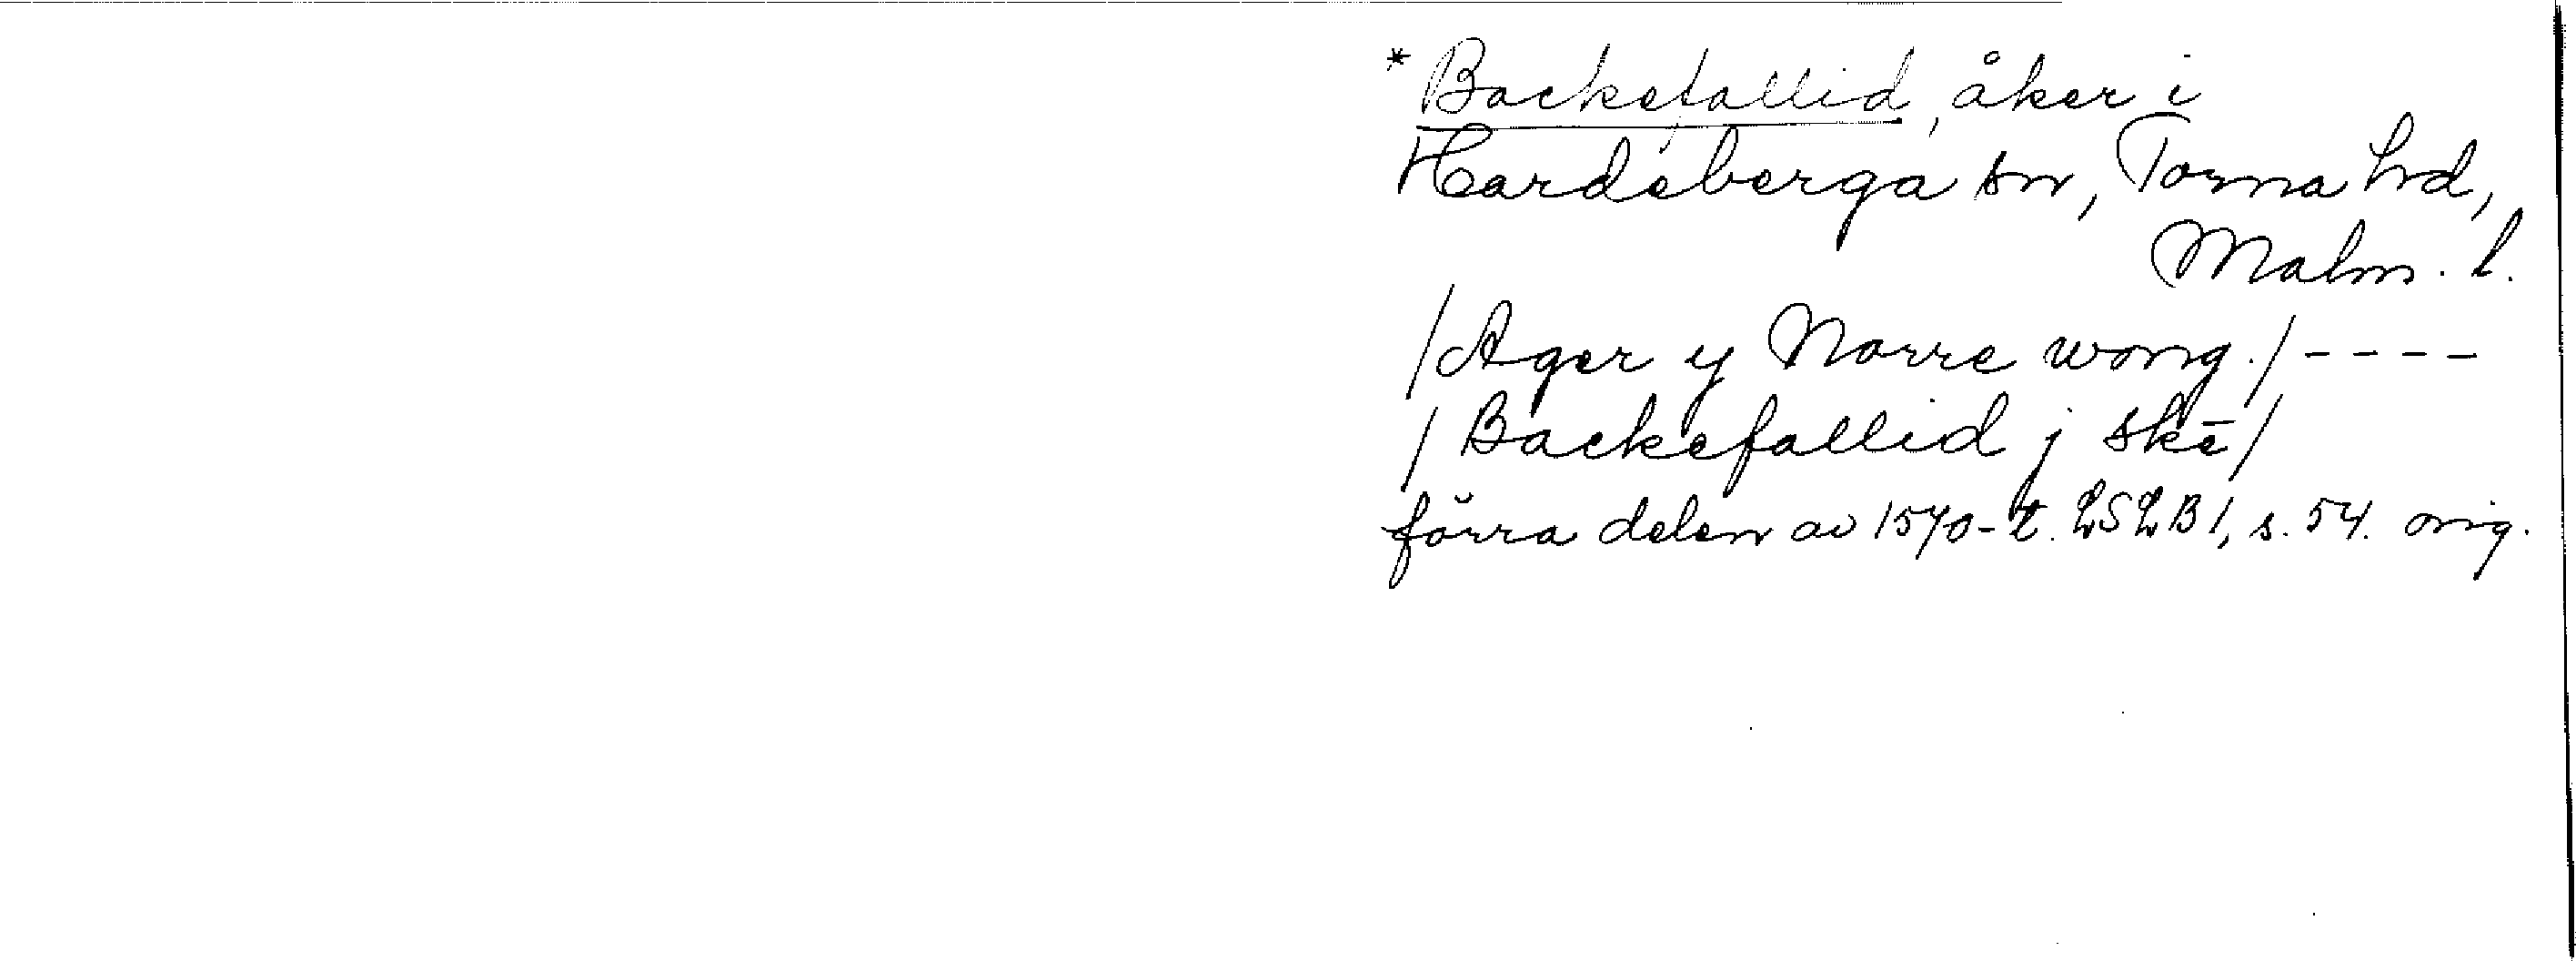 * Backefallid, åker i
Hardeberga sn, Torna hd,
Malm. l.
/Ager y Norre wong./ - - - -
/Backefallid j skē/
förra delen av 1570-t. LSLB 1, s. 54. orig.